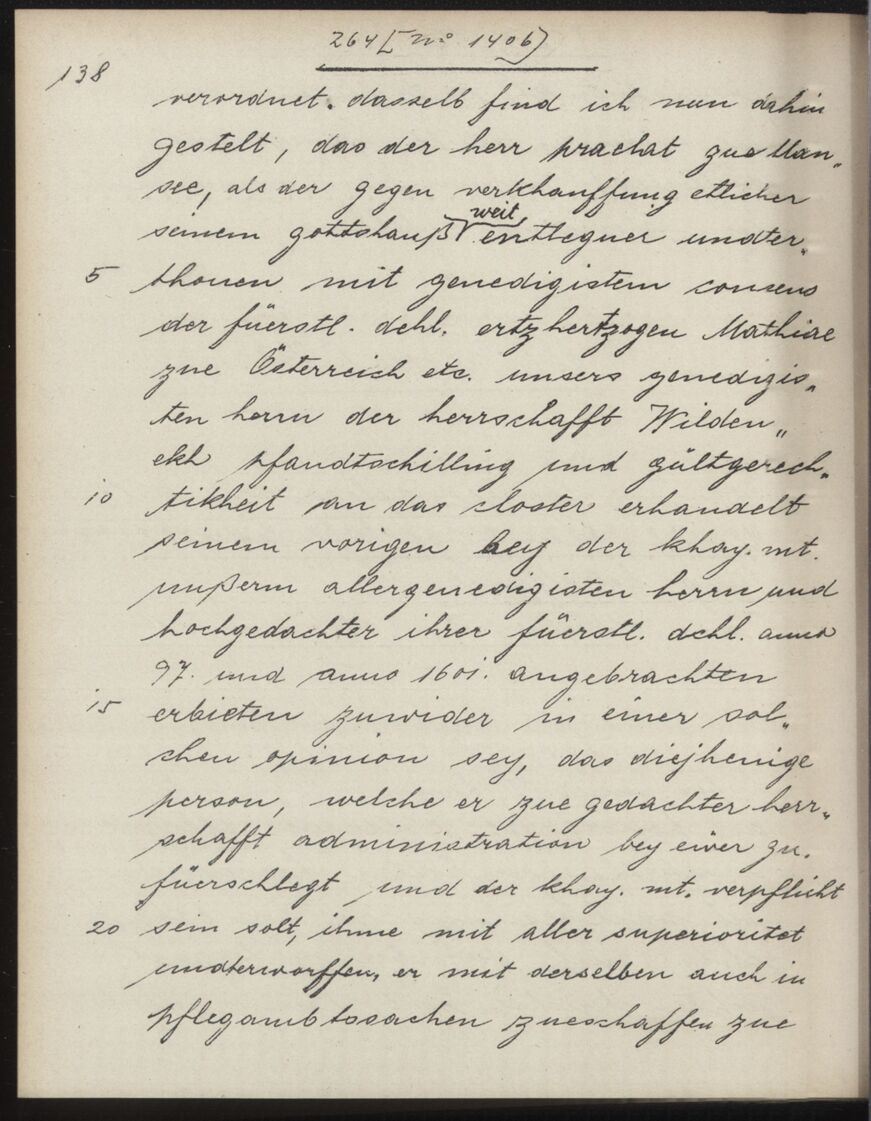 264 [No 1406]
138
verordnet. dasselb find ich nun dahin
gestelt, das der herr praelat zue Man„
see, als der gegen verkhauffung etlicher
seinem gottshauß weit entlegner undter„
5 thonen mit genedigistem consens
der füerstl. dchl. ertzhertzogen Mathiae
zue Österreich etc. unsers genedigis„
ten herrn der herrschafft Wilden„
ekh pfandtschilling und gültgerech„
10 tikheit an das closter erhandelt
seinem vorigen bey der khay. mt.
unßerm allergenedigisten herrn und
hochgedachter ihrer füerstl. dchl. anno
97. und anno 1601. angebrachten
15 erbieten zuwider in einer sol„
chen opinion sey, das diejhenige
person, welche er zue gedachter herr„
schafft administration bey eüer gn.
füerschlegt und der khay. mt. verpflicht
20 sein solt, ihme mit aller superioritet
undterworffen, er mit derselben auch in
pflegambtssachen zueschaffen zue